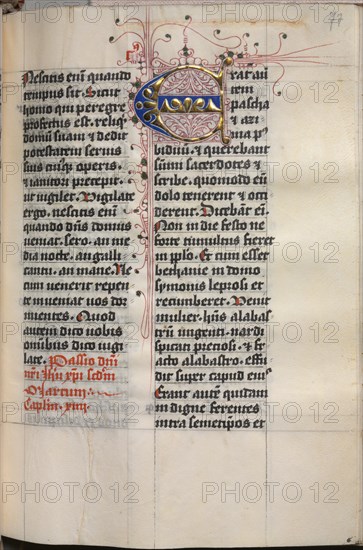 77
Nescitis em̄ quando
tempus sit. Sicut
homo qui peregre
profectus est. reliq̄t
domū suam ⁊ dedit
potestatem seruis
suis cuiusq; operis.
⁊ ianitori precepit
ut uigilet. Vigilate
ergo. nescitis em̄
quando dn̄s domus
ueniat. sero. an me
dia nocte. an galli
cantu. an mane. Ne
cum uenerit repen
te inueniat uos dor
mientes. Quod
autem dico uobis
omnibus dico uigi
late. Passio dn̄i
nr̄i ihū xp̄i scd̄m
Marcum.
Caplm̄. xiiij.
Erat au
tem
pascha
⁊ azi
ma p̄
biduū. ⁊ querebant
sūmi sacerdotes ⁊
scribe. quomodo eū
dolo tenerent ⁊ occi
derent. Dicebāt em̄.
Non in die festo ne
forte tumultus fieret
in pl̄o. Et cum esset
bethanie in domo
symonis leprosi et
recumberet. Venit
mulier. hn̄s alabas
trū ungenti. nardi
spicati preciosi. ⁊ fr
acto alabastro. effu
dit super caput eius
Erant autē quidam
indigne ferentes
intra semetip̄os et